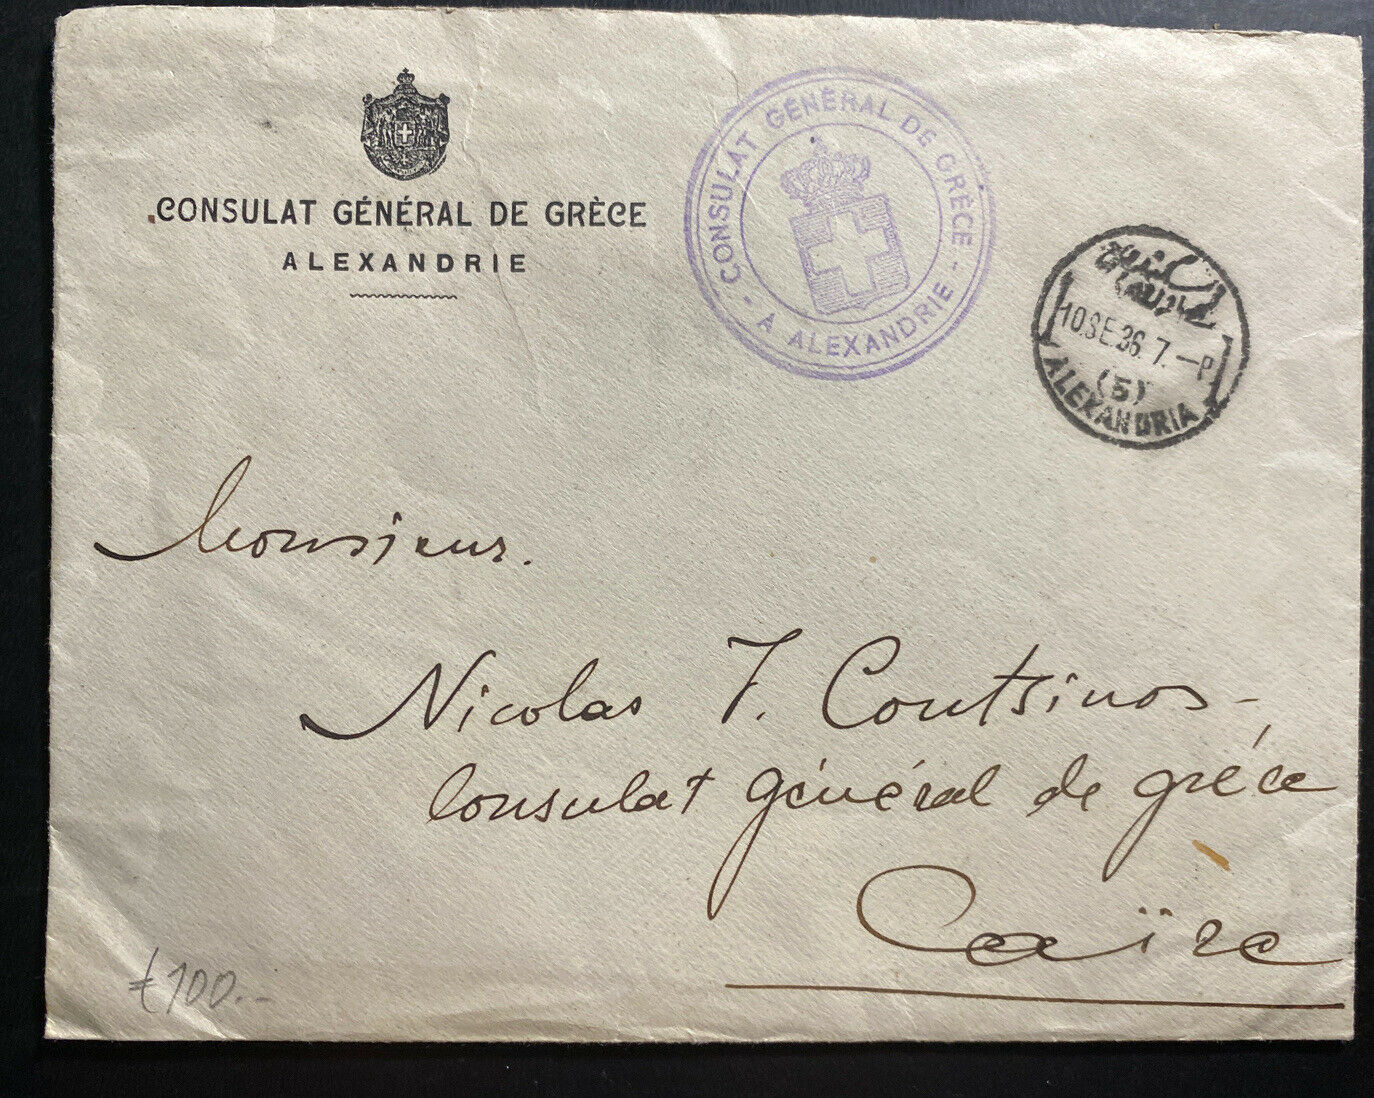 CONSULAT GÉNÉRAL DE GRÈCE
ALEXANDRIE
CONSULAT GÉNÉRAL DE GRÈCE
- A ALEXANDRIE -
10.SE.36.7.-P
(5)
ALEXANDRIA
Monsieur.
Nicolas J. Contsinos-
Consulat général de grèce
Caïre
€100.-